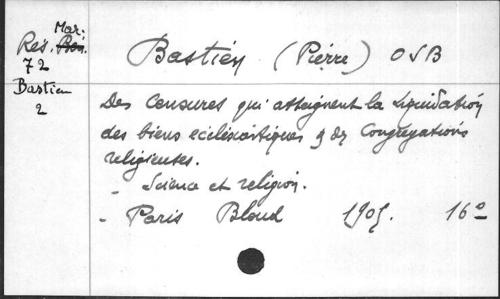 Mar:
Rés. Bon.
72
Bastien
2
Bastien (Pierre) OSB
Des Censures qui atteignent la liquidation
des biens ecclésiastiques & des Congrégations
religieuses.
- Science et religion.
- Paris Bloud 1905. 16°